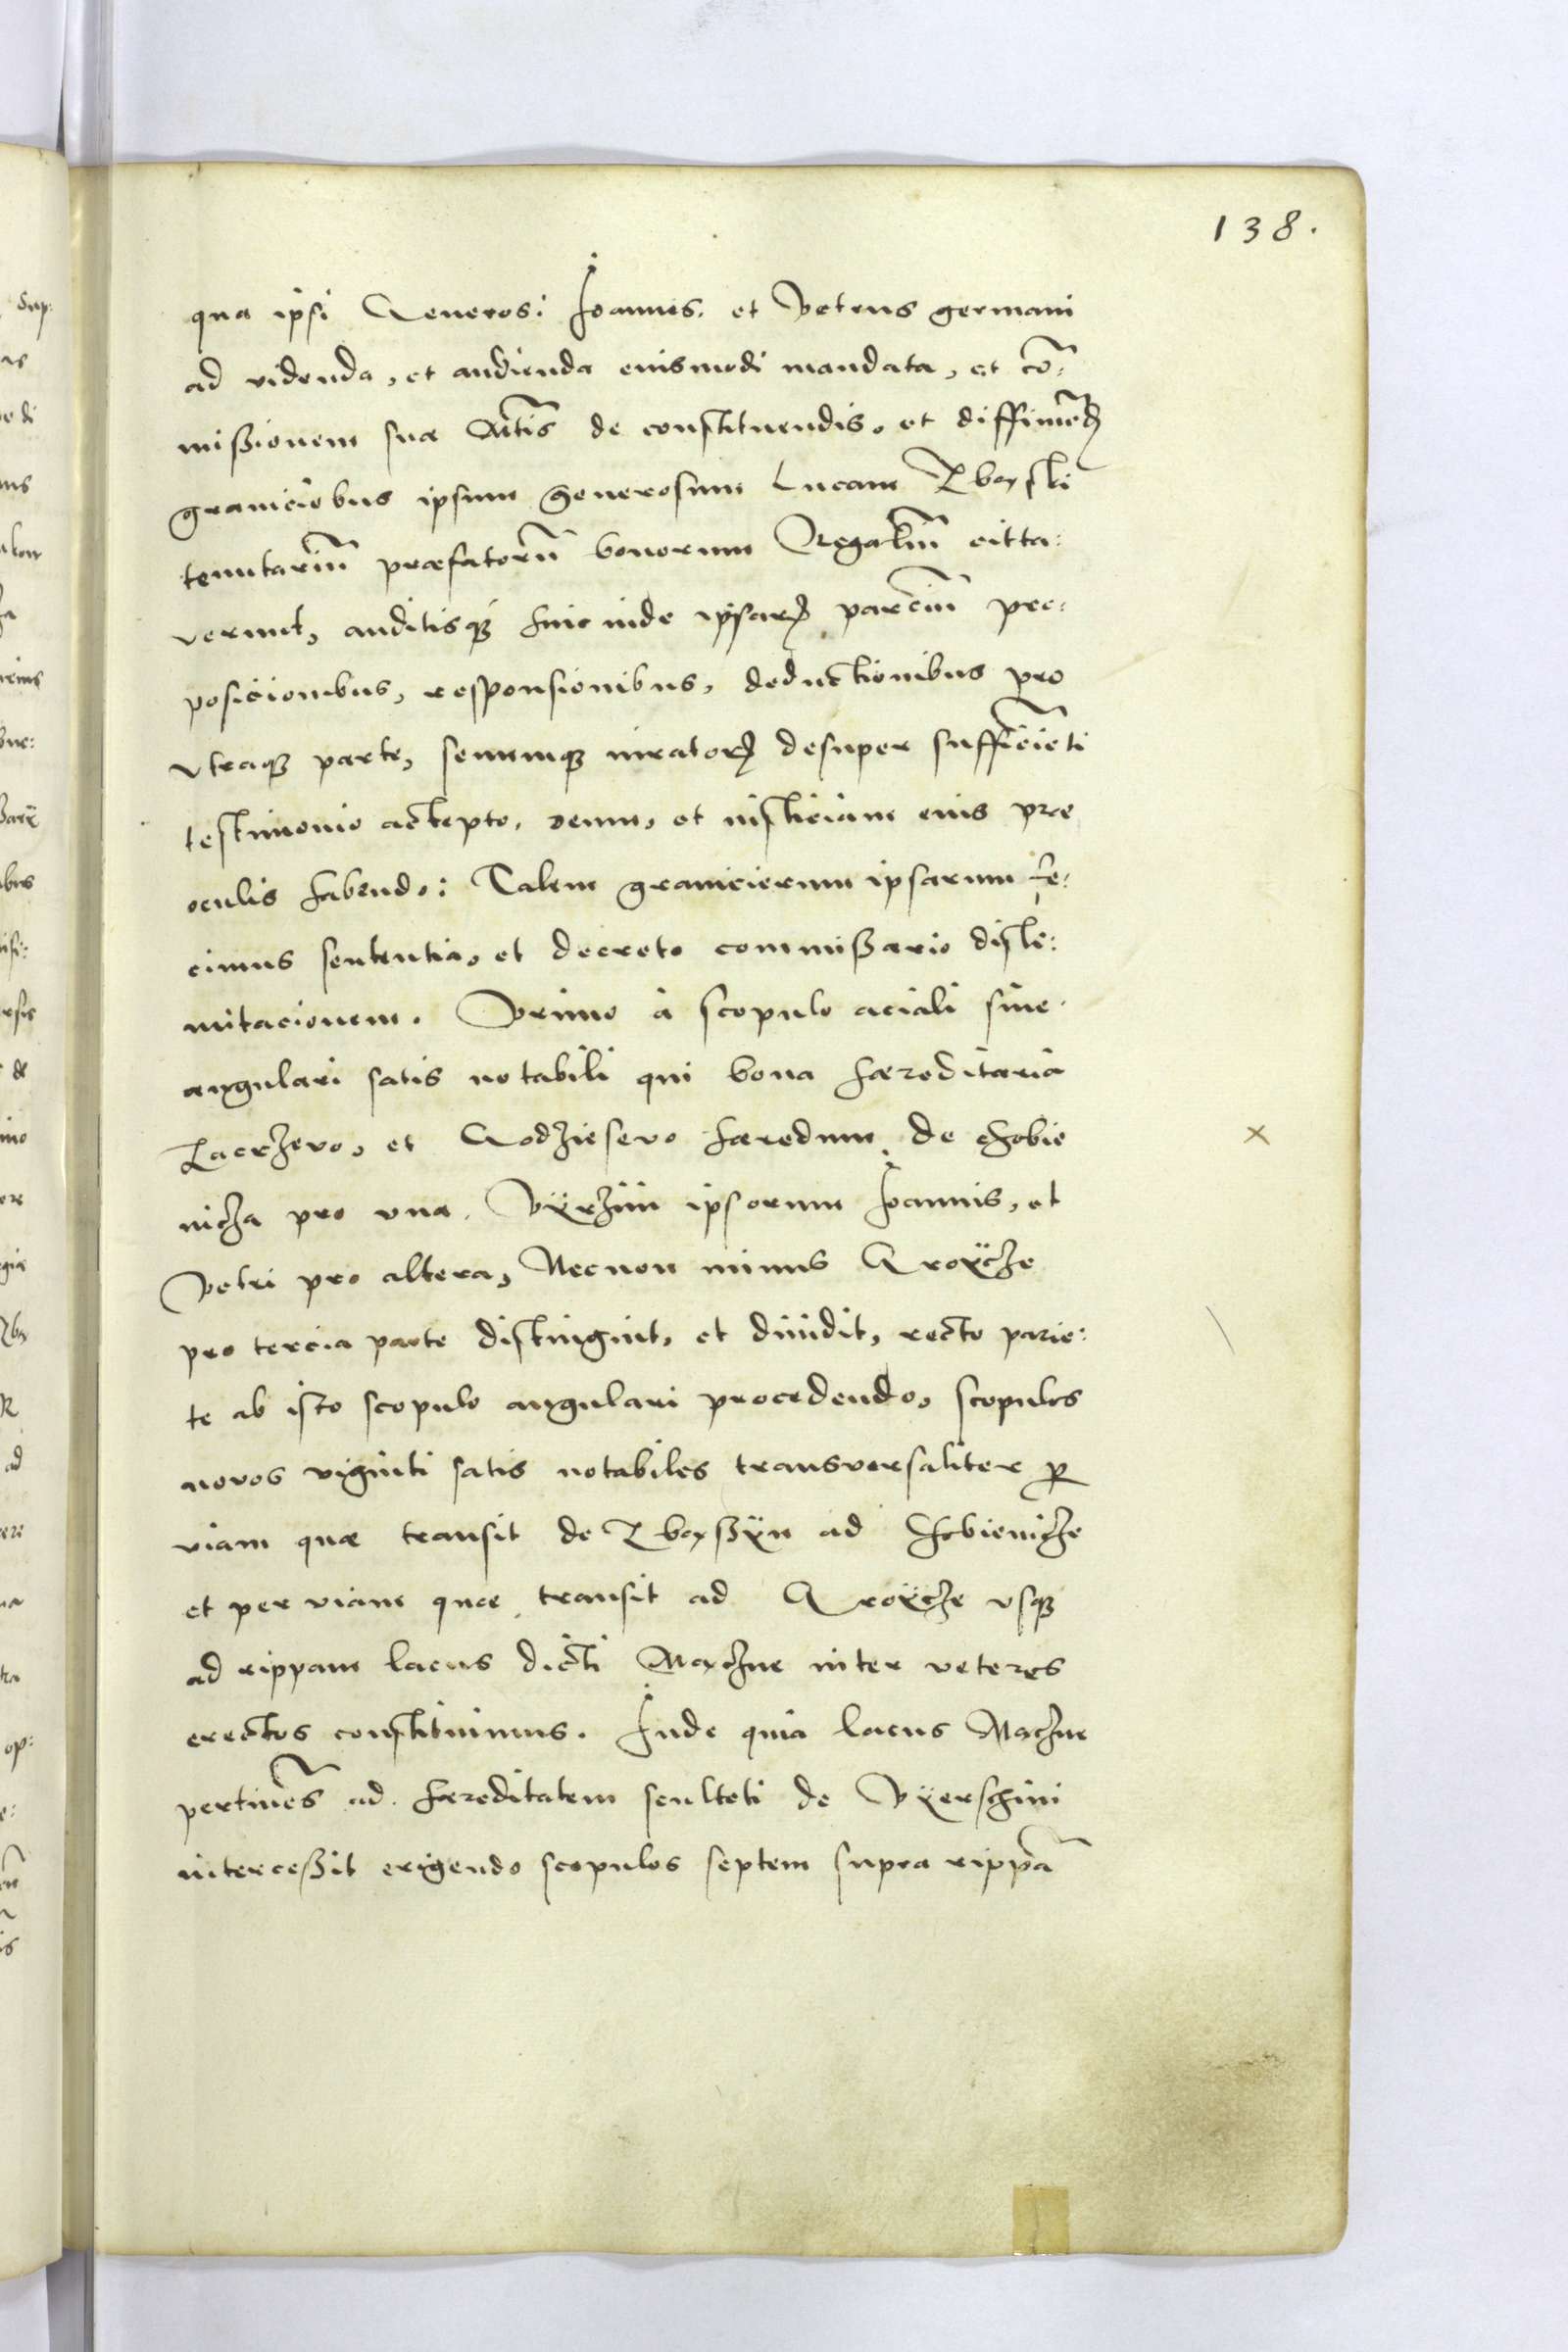 138.
qua ipsi Generosi Ioannes, et Petrus germani
ad videnda, et audienda eiusmodi mandata, et cõ:
mißionem suæ Mtis̃ de constituendis, et diffiniẽdꝝ
graniciebus ipsum generosum Lucam Zbayski
tenutariũ præfatorũ bonorum Regaliũ citta:
verunt, auditisqȝ hinc inde ipsarꝝ parciũ pro:
posicionibus, responsionibus, deductionibus pro
vtraqȝ parte, senumqȝ iuratorꝝ desuper sufficiẽti
testimonio accepto, Deum, et iusticiam eius præ
oculis habendo: Talem granicierum ipsarum fe:
cimus sententia, et decreto commißario disli:
mitacionem. Primo à scopulo aciali siue
angulari satis notabili qui bona hæreditaria
Zacrzevo, et Godziesevo hæredum de Chobie
nicza pro vna, Pÿrzini ipsorum Ioannis, et
Petri pro altera, Necnon minus Groÿcze
pro tercia parte distinguit, et diuidit, recto parie:
te ab isto scopulo angulari procedendo, scopulos
novos viginti satis notabiles transversaliter ꝑ
viam quæ transit de Zbaxßÿn ad Chobienicze
et per viam quæ transit ad Groÿcze vsqȝ
ad rippam lacus dicti Maczne inter veteres
erectos constituimus. Inde quia lacus Maczne
pertinẽs ad hæreditatem sculteti de Pÿerschini
interceßit erigendo scopulos septem supra rippã